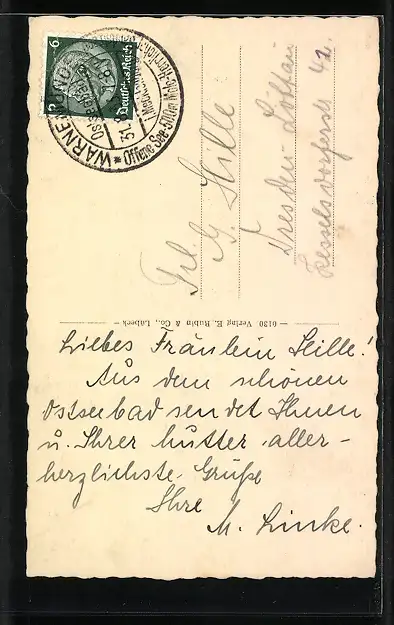 6
Deutsches Reich
WARNEMÜNDE
Ostseebad
31.
Offene See
Frl. G. Hille
Dresden-Löbtau
Kesselsdorferstr 42
0130 Verlag E. Rubin & Co., Lübeck
Liebes Fräulein Hille!
Aus dem schönen
Ostseebad sendet Ihnen
u. Ihrer Mutter aller-
herzlichste Grüße
Ihre
M. Linke.